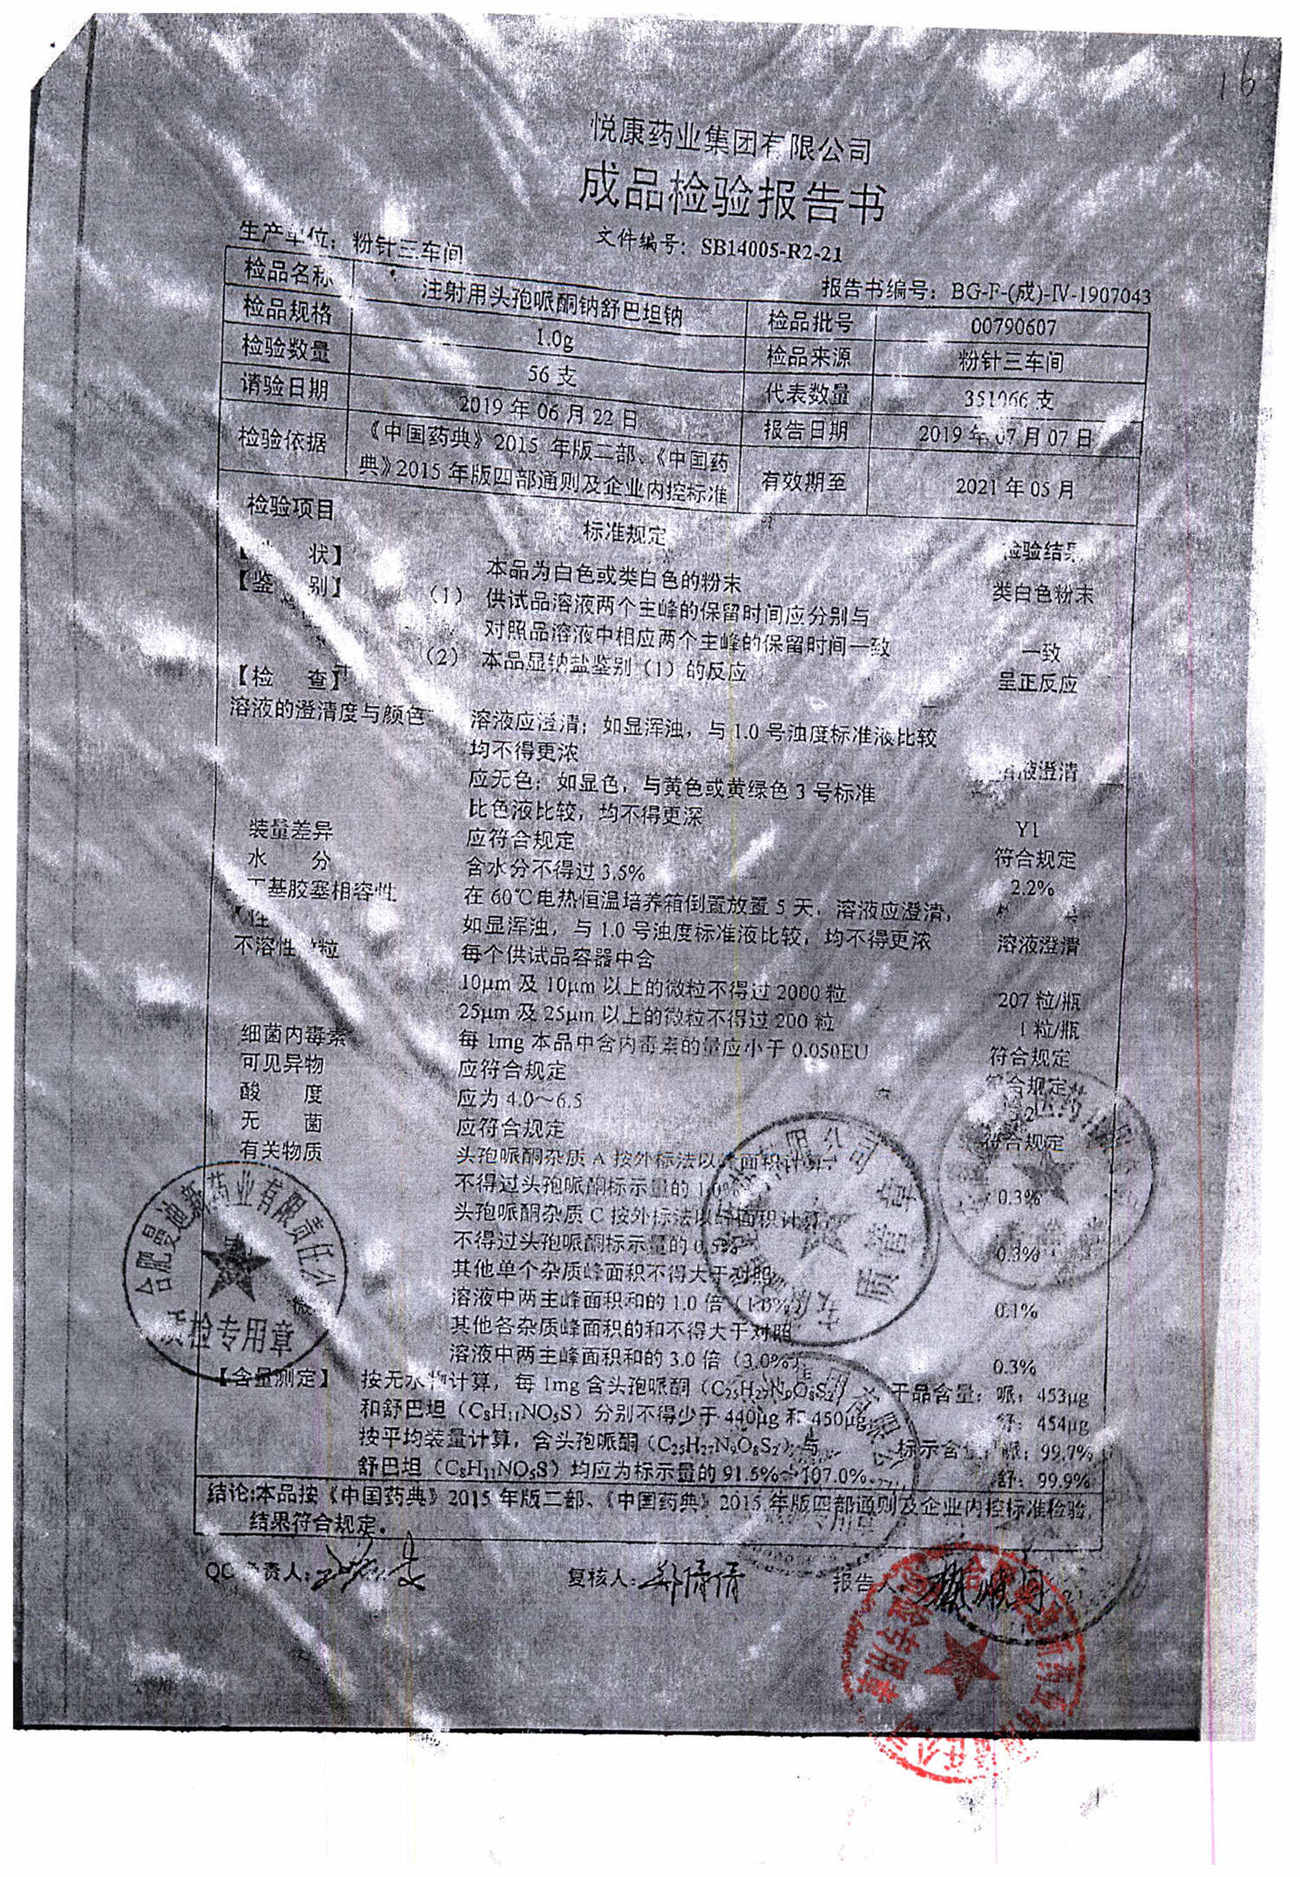 16
悦康药业集团有限公司
成品检验报告书
文件编号：SB14005-R2-21
生产单位：粉针三车间
报告书编号：BG-F-(成)-Ⅳ-1907043
检品名称 注射用头孢哌酮钠舒巴坦钠 检品批号 00790607
检品规格 1.0g 检品来源 粉针三车间
检验数量 56 支 代表数量 351066 支
请验日期 2019 年 06 月 22 日 报告日期 2019 年 07 月 07 日
检验依据 《中国药典》2015 年版二部、《中国药
典》2015 年版四部通则及企业内控标准 有效期至 2021 年 05 月
检验项目 标准规定 检验结果
状】 本品为白色或类白色的粉末 类白色粉末
【鉴 别】 （1） 供试品溶液两个主峰的保留时间应分别与
对照品溶液中相应两个主峰的保留时间一致 一致
（2） 本品显钠盐鉴别（1）的反应 呈正反应
【检 查】
溶液的澄清度与颜色 溶液应澄清；如显浑浊，与 1.0 号浊度标准液比较
均不得更浓 溶液澄清
应无色；如显色，与黄色或黄绿色 3 号标准
比色液比较，均不得更深 Y1
装量差异 应符合规定 符合规定
水 分 含水分不得过 3.5% 2.2%
丁基胶塞相容性 在 60℃电热恒温培养箱倒置放置 5 天，溶液应澄清，
如显浑浊，与 1.0 号浊度标准液比较，均不得更浓 溶液澄清
不溶性微粒 每个供试品容器中含
10μm 及 10μm 以上的微粒不得过 2000 粒 207 粒/瓶
25μm 及 25μm 以上的微粒不得过 200 粒 1 粒/瓶
细菌内毒素 每 1mg 本品中含内毒素的量应小于 0.050EU 符合规定
可见异物 应符合规定 符合规定
酸 度 应为 4.0～6.5
无 菌 应符合规定 符合规定
有关物质 头孢哌酮杂质 A 按外标法以峰面积计算，
不得过头孢哌酮标示量的 1.0% 0.3%
头孢哌酮杂质 C 按外标法以峰面积计算，
不得过头孢哌酮标示量的 0.5% 0.3%
其他单个杂质峰面积不得大于对照
溶液中两主峰面积和的 1.0 倍（1.0%） 0.1%
其他各杂质峰面积的和不得大于对照
溶液中两主峰面积和的 3.0 倍（3.0%） 0.3%
【含量测定】 按无水物计算，每 1mg 含头孢哌酮（C₂₅H₂₇N₉O₈S₂） 干品含量：哌：453μg
和舒巴坦（C₈H₁₁NO₅S）分别不得少于 440μg 和 450μg 舒：454μg
按平均装量计算，含头孢哌酮（C₂₅H₂₇N₉O₈S₂）与 标示含量：哌：99.7%
舒巴坦（C₈H₁₁NO₅S）均应为标示量的 91.5%～107.0%。 舒：99.9%
结论:本品按《中国药典》2015 年版二部、《中国药典》2015 年版四部通则及企业内控标准检验，
结果符合规定。
QC 负责人： 复核人：郑倩倩 报告人
合肥曼迪新药业有限责任公
质检专用章
质检专用章